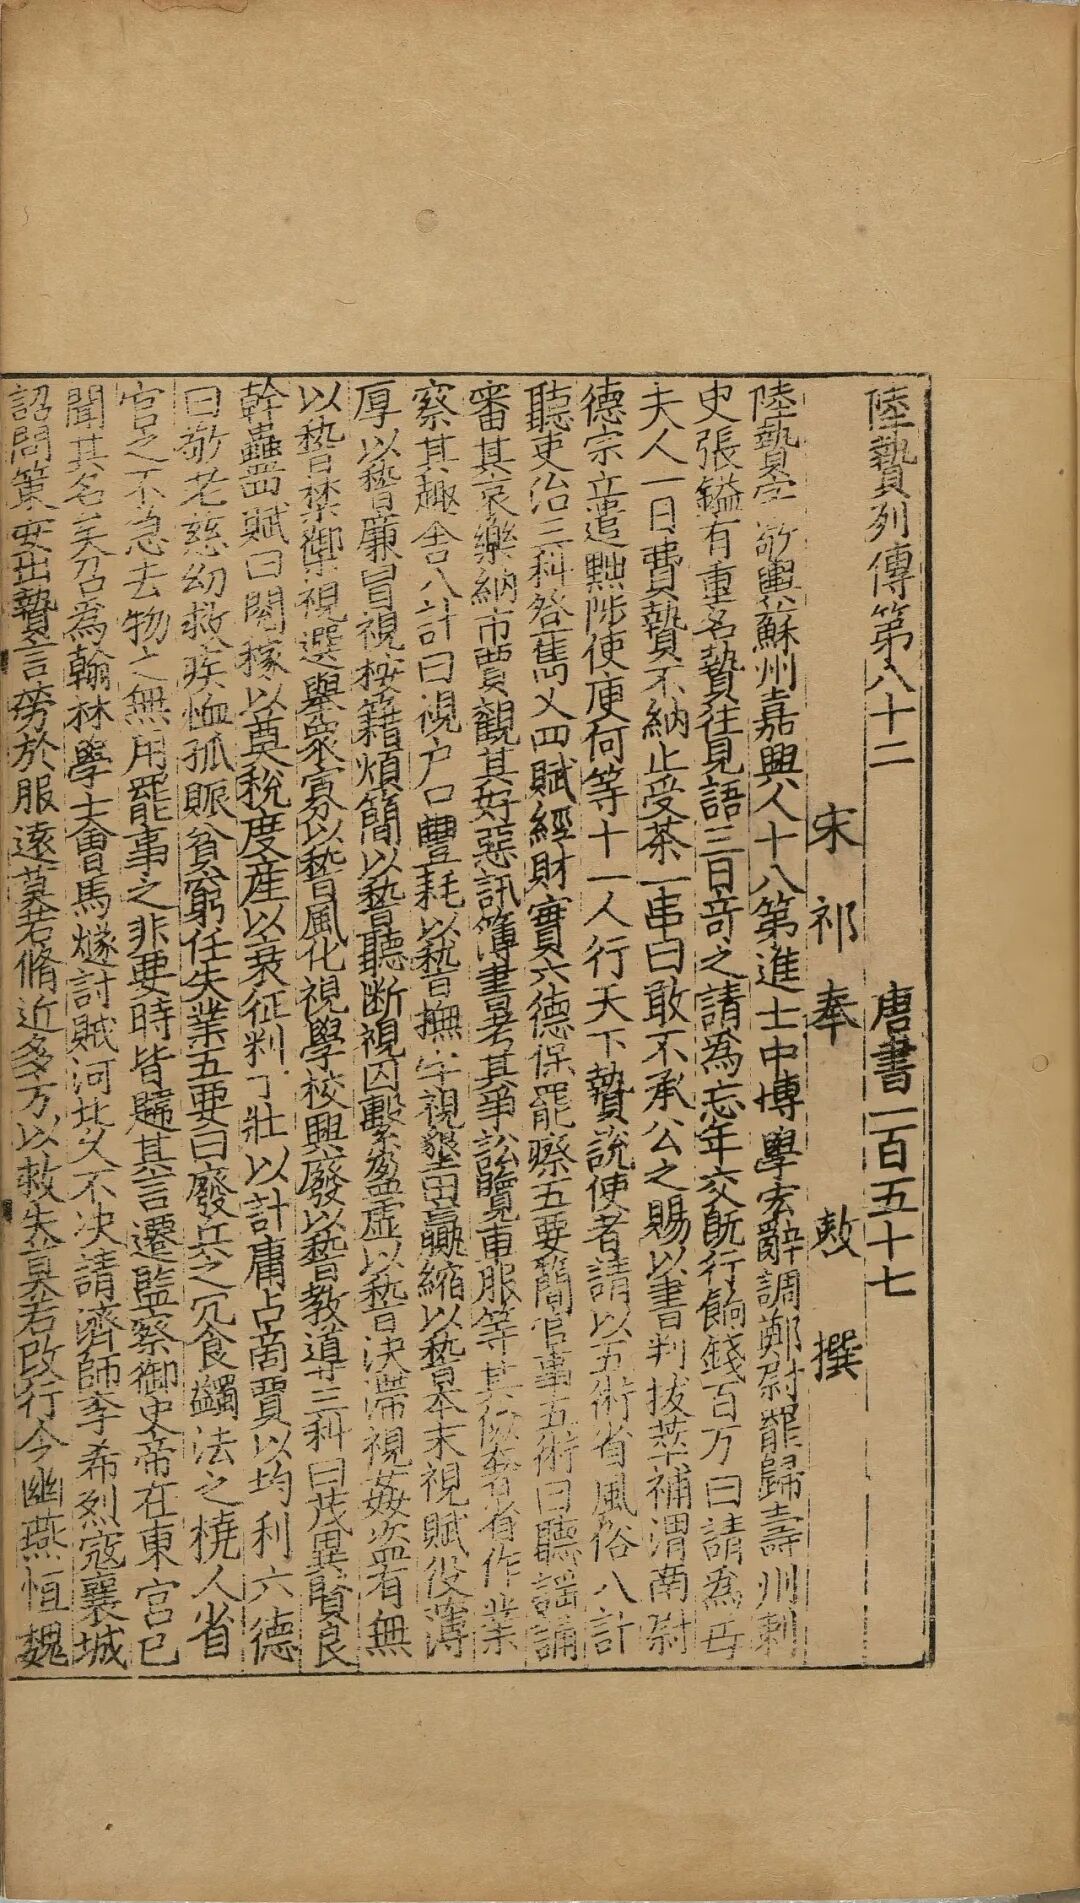 陸贄列傳第八十二 唐書一百五十七
宋祁奉 敕撰
陸贄字敬輿蘇州嘉興人十八第進士中博學宏辭調鄭尉罷歸壽州刺
史張鎰有重名贄往見語三日竒之請為忘年交旣行餉錢百万曰請為母
夫人一日費贄不納止受茶一串曰敢不承公之賜以書判拔萃補渭南尉
德宗立遣黜陟使庾何等十一人行天下贄說使者請以五術省風俗八計
聽吏治三科登雋乂四賦經財實六德保罷瘵五要簡官事五術曰聽謡誦
審其哀樂納市賈觀其好惡訊簿書考其爭訟覽車服等其儉奢省作業
察其趣舎八計曰視户口豐耗以稽撫字視墾田贏縮以稽本末視賦役薄
厚以稽廉冒視按籍煩簡以稽聽断視囚繫盈虚以稽决滯視姦盗有無
以稽禁御視選舉衆寡以稽風化視學校興廢以稽教導三科曰茂異賢良
幹蠱四賦曰閱稼以奠稅度産以衰征料丁壯以計庸占商賈以均利六德
曰敬老慈幼救疾恤孤賑貧窮任失業五要曰廢兵之冗食蠲法之橈人省
官之不急去物之無用罷事之非要時皆韙其言遷監察御史帝在東宫已
聞其名矣召為翰林學士會馬燧討賊河北久不决請濟師李希烈寇襄城
詔問策安出贄言勞於服逺莫若脩近多方以救失莫若改行今幽燕恒魏